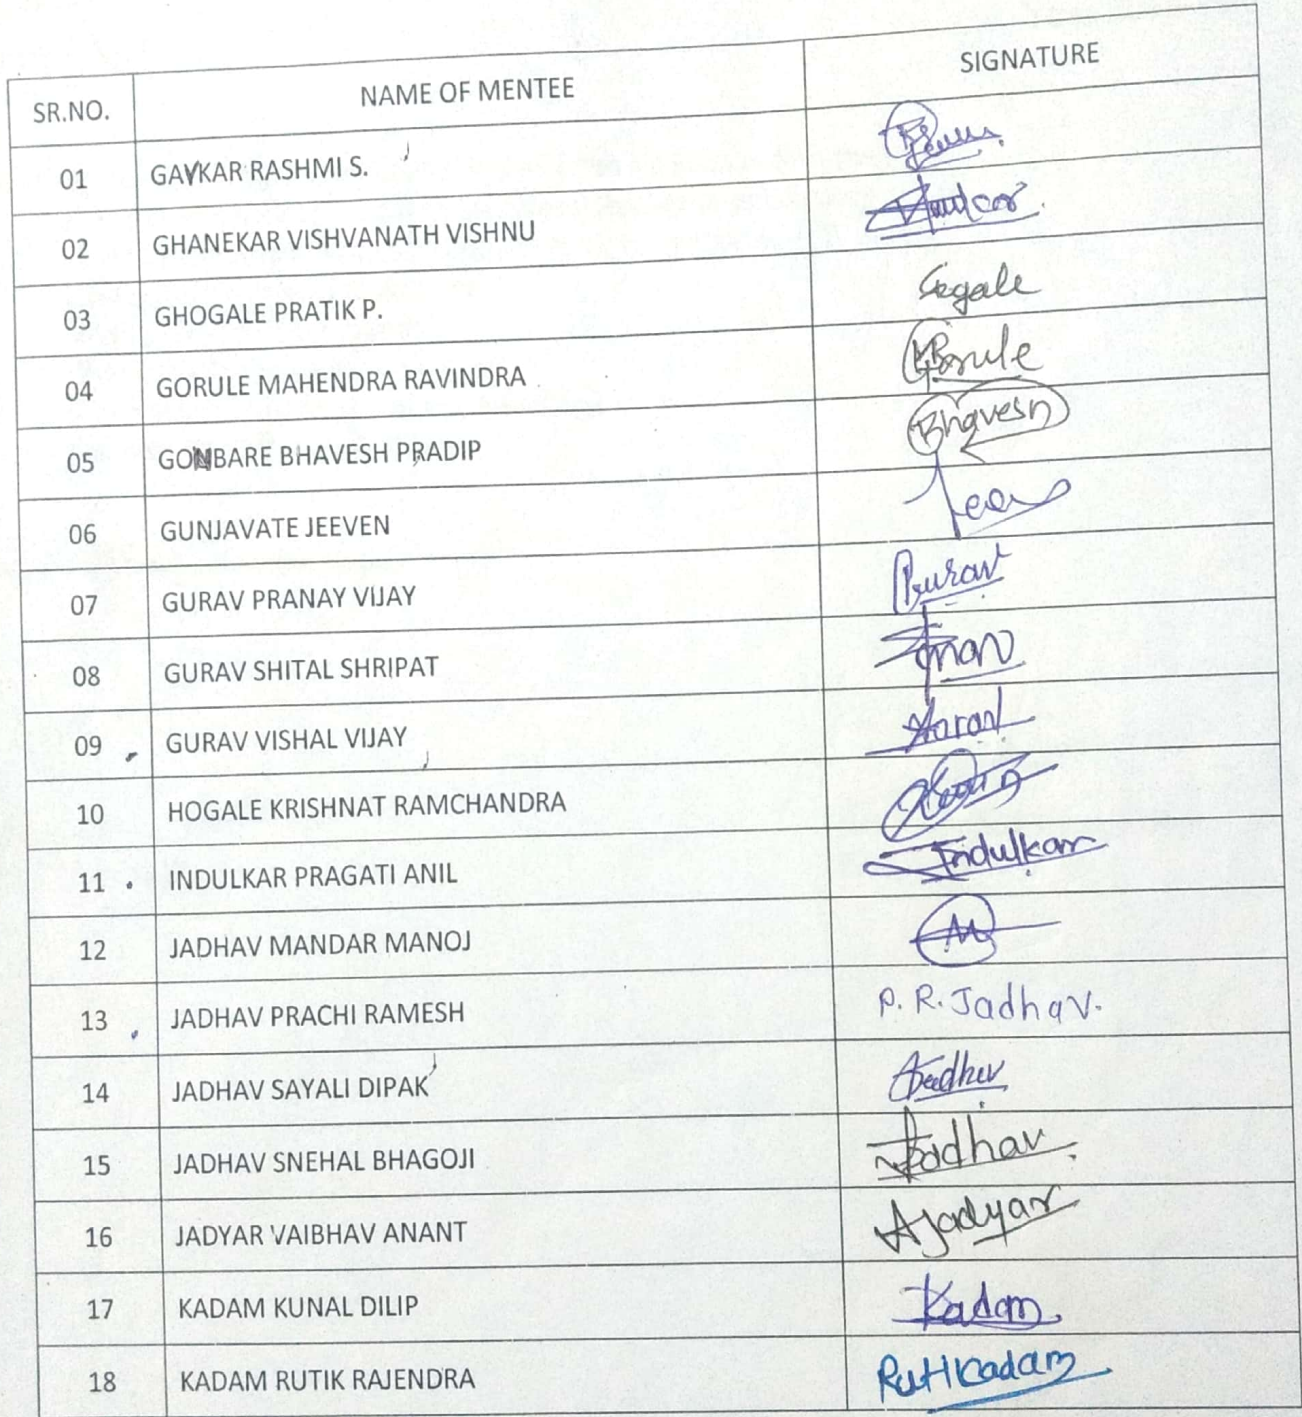 SR.NO. NAME OF MENTEE SIGNATURE
01 GAVKAR RASHMI S.
02 GHANEKAR VISHVANATH VISHNU
03 GHOGALE PRATIK P.
04 GORULE MAHENDRA RAVINDRA
05 GONBARE BHAVESH PRADIP Bhavesh
06 GUNJAVATE JEEVEN
07 GURAV PRANAY VIJAY
08 GURAV SHITAL SHRIPAT
09 GURAV VISHAL VIJAY
10 HOGALE KRISHNAT RAMCHANDRA
11 INDULKAR PRAGATI ANIL Indulkar
12 JADHAV MANDAR MANOJ M
13 JADHAV PRACHI RAMESH P. R. Jadhav.
14 JADHAV SAYALI DIPAK
15 JADHAV SNEHAL BHAGOJI Jadhav
16 JADYAR VAIBHAV ANANT AJadyar
17 KADAM KUNAL DILIP Kadam
18 KADAM RUTIK RAJENDRA